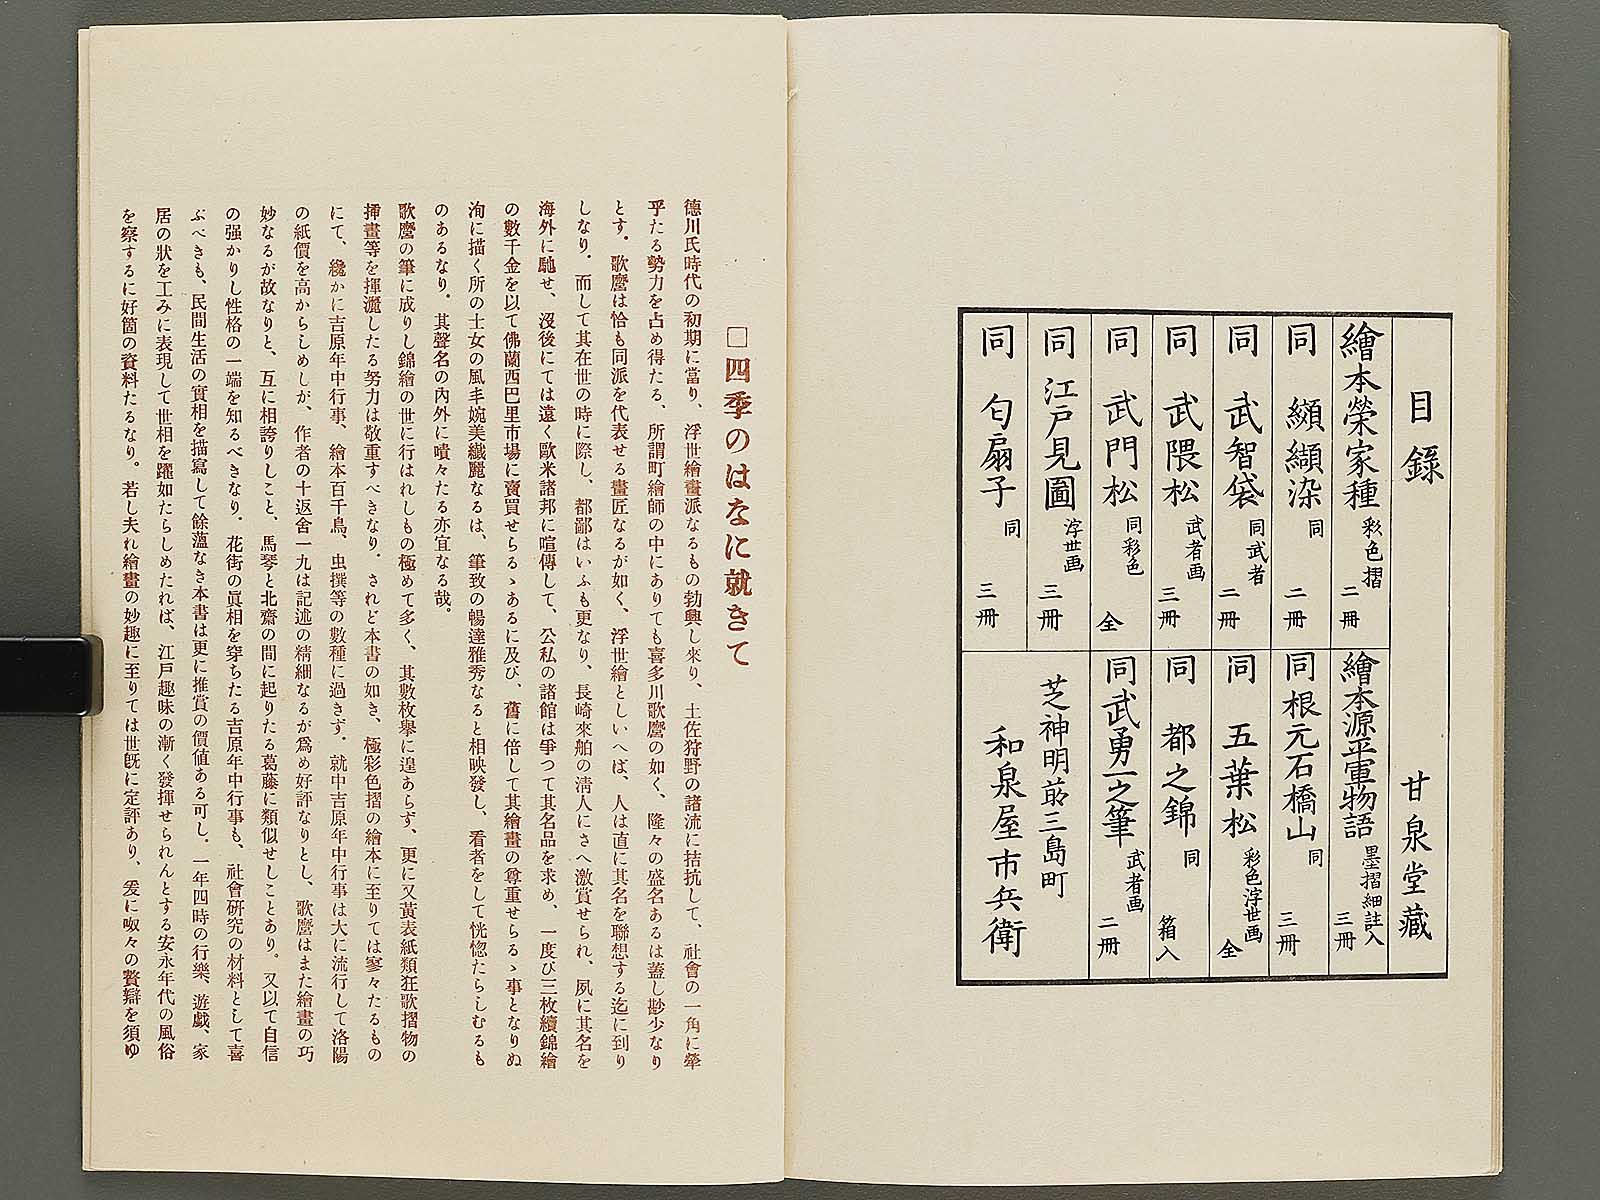 目錄 甘泉堂藏
繪本榮家種 彩色摺 二冊
繪本源平軍物語 墨摺細註入 三冊
同 纐纈染 同 二冊
同根元石橋山 同 三冊
同 武智袋 同武者 二冊
同 五葉松 彩色浮世画 全
同 武隈松 武者画 三冊
同 都之錦 同 箱入
同 武門松 同彩色 全
同武勇一之筆 武者画 二冊
同 江戸見圖 浮世画 三冊
同 匂扇子 同 三冊
芝神明前三島町
和泉屋市兵衛
□四季のはなに就きて
德川氏時代の初期に當り、浮世繪畫派なるもの勃興し來り、土佐狩野の諸流に拮抗して、社會の一角に犖
乎たる勢力を占め得たる、所謂町繪師の中にありても喜多川歌麿の如く、隆々の盛名あるは蓋し尠少なり
とす。歌麿は恰も同派を代表せる畫匠なるが如く、浮世繪としいへば、人は直に其名を聯想する迄に到り
しなり。而して其在世の時に際し、都鄙はいふも更なり、長崎來舶の淸人にさへ激賞せられ、夙に其名を
海外に馳せ、沒後にては遠く歐米諸邦に喧傳して、公私の諸館は爭つて其名品を求め、一度び三枚續錦繪
の數千金を以て佛蘭西巴里市場に賣買せらるゝあるに及び、舊に倍して其繪畫の尊重せらるゝ事となりぬ
洵に描く所の士女の風丰婉美纎麗なるは、筆致の暢達雅秀なると相映發し、看者をして恍惚たらしむるも
のあるなり。其聲名の內外に嘖々たる亦宜なる哉。
歌麿の筆に成りし錦繪の世に行はれしもの極めて多く、其數枚擧に遑あらず、更に又黃表紙類狂歌摺物の
揷畫等を揮灑したる努力は敬重すべきなり。されど本書の如き、極彩色摺の繪本に至りては寥々たるもの
にて、纔かに吉原年中行事、繪本百千鳥、虫撰等の數種に過きず。就中吉原年中行事は大に流行して洛陽
の紙價を高からしめしが、作者の十返舍一九は記述の精細なるが爲め好評なりとし、歌麿はまた繪畫の巧
妙なるが故なりと、互に相誇りしこと、馬琴と北齋の間に起りたる葛藤に類似せしことあり。又以て自信
の强かりし性格の一端を知るべきなり。花街の眞相を穿ちたる吉原年中行事も、社會硏究の材料として喜
ぶべきも、民間生活の實相を描寫して餘薀なき本書は更に推賞の價値ある可し。一年四時の行樂、遊戲、家
居の狀を工みに表現して世相を躍如たらしめたれば、江戸趣味の漸く發揮せられんとする安永年代の風俗
を察するに好箇の資料たるなり。若し夫れ繪畫の妙趣に至りては世旣に定評あり、爰に呶々の贅辯を須ゆ